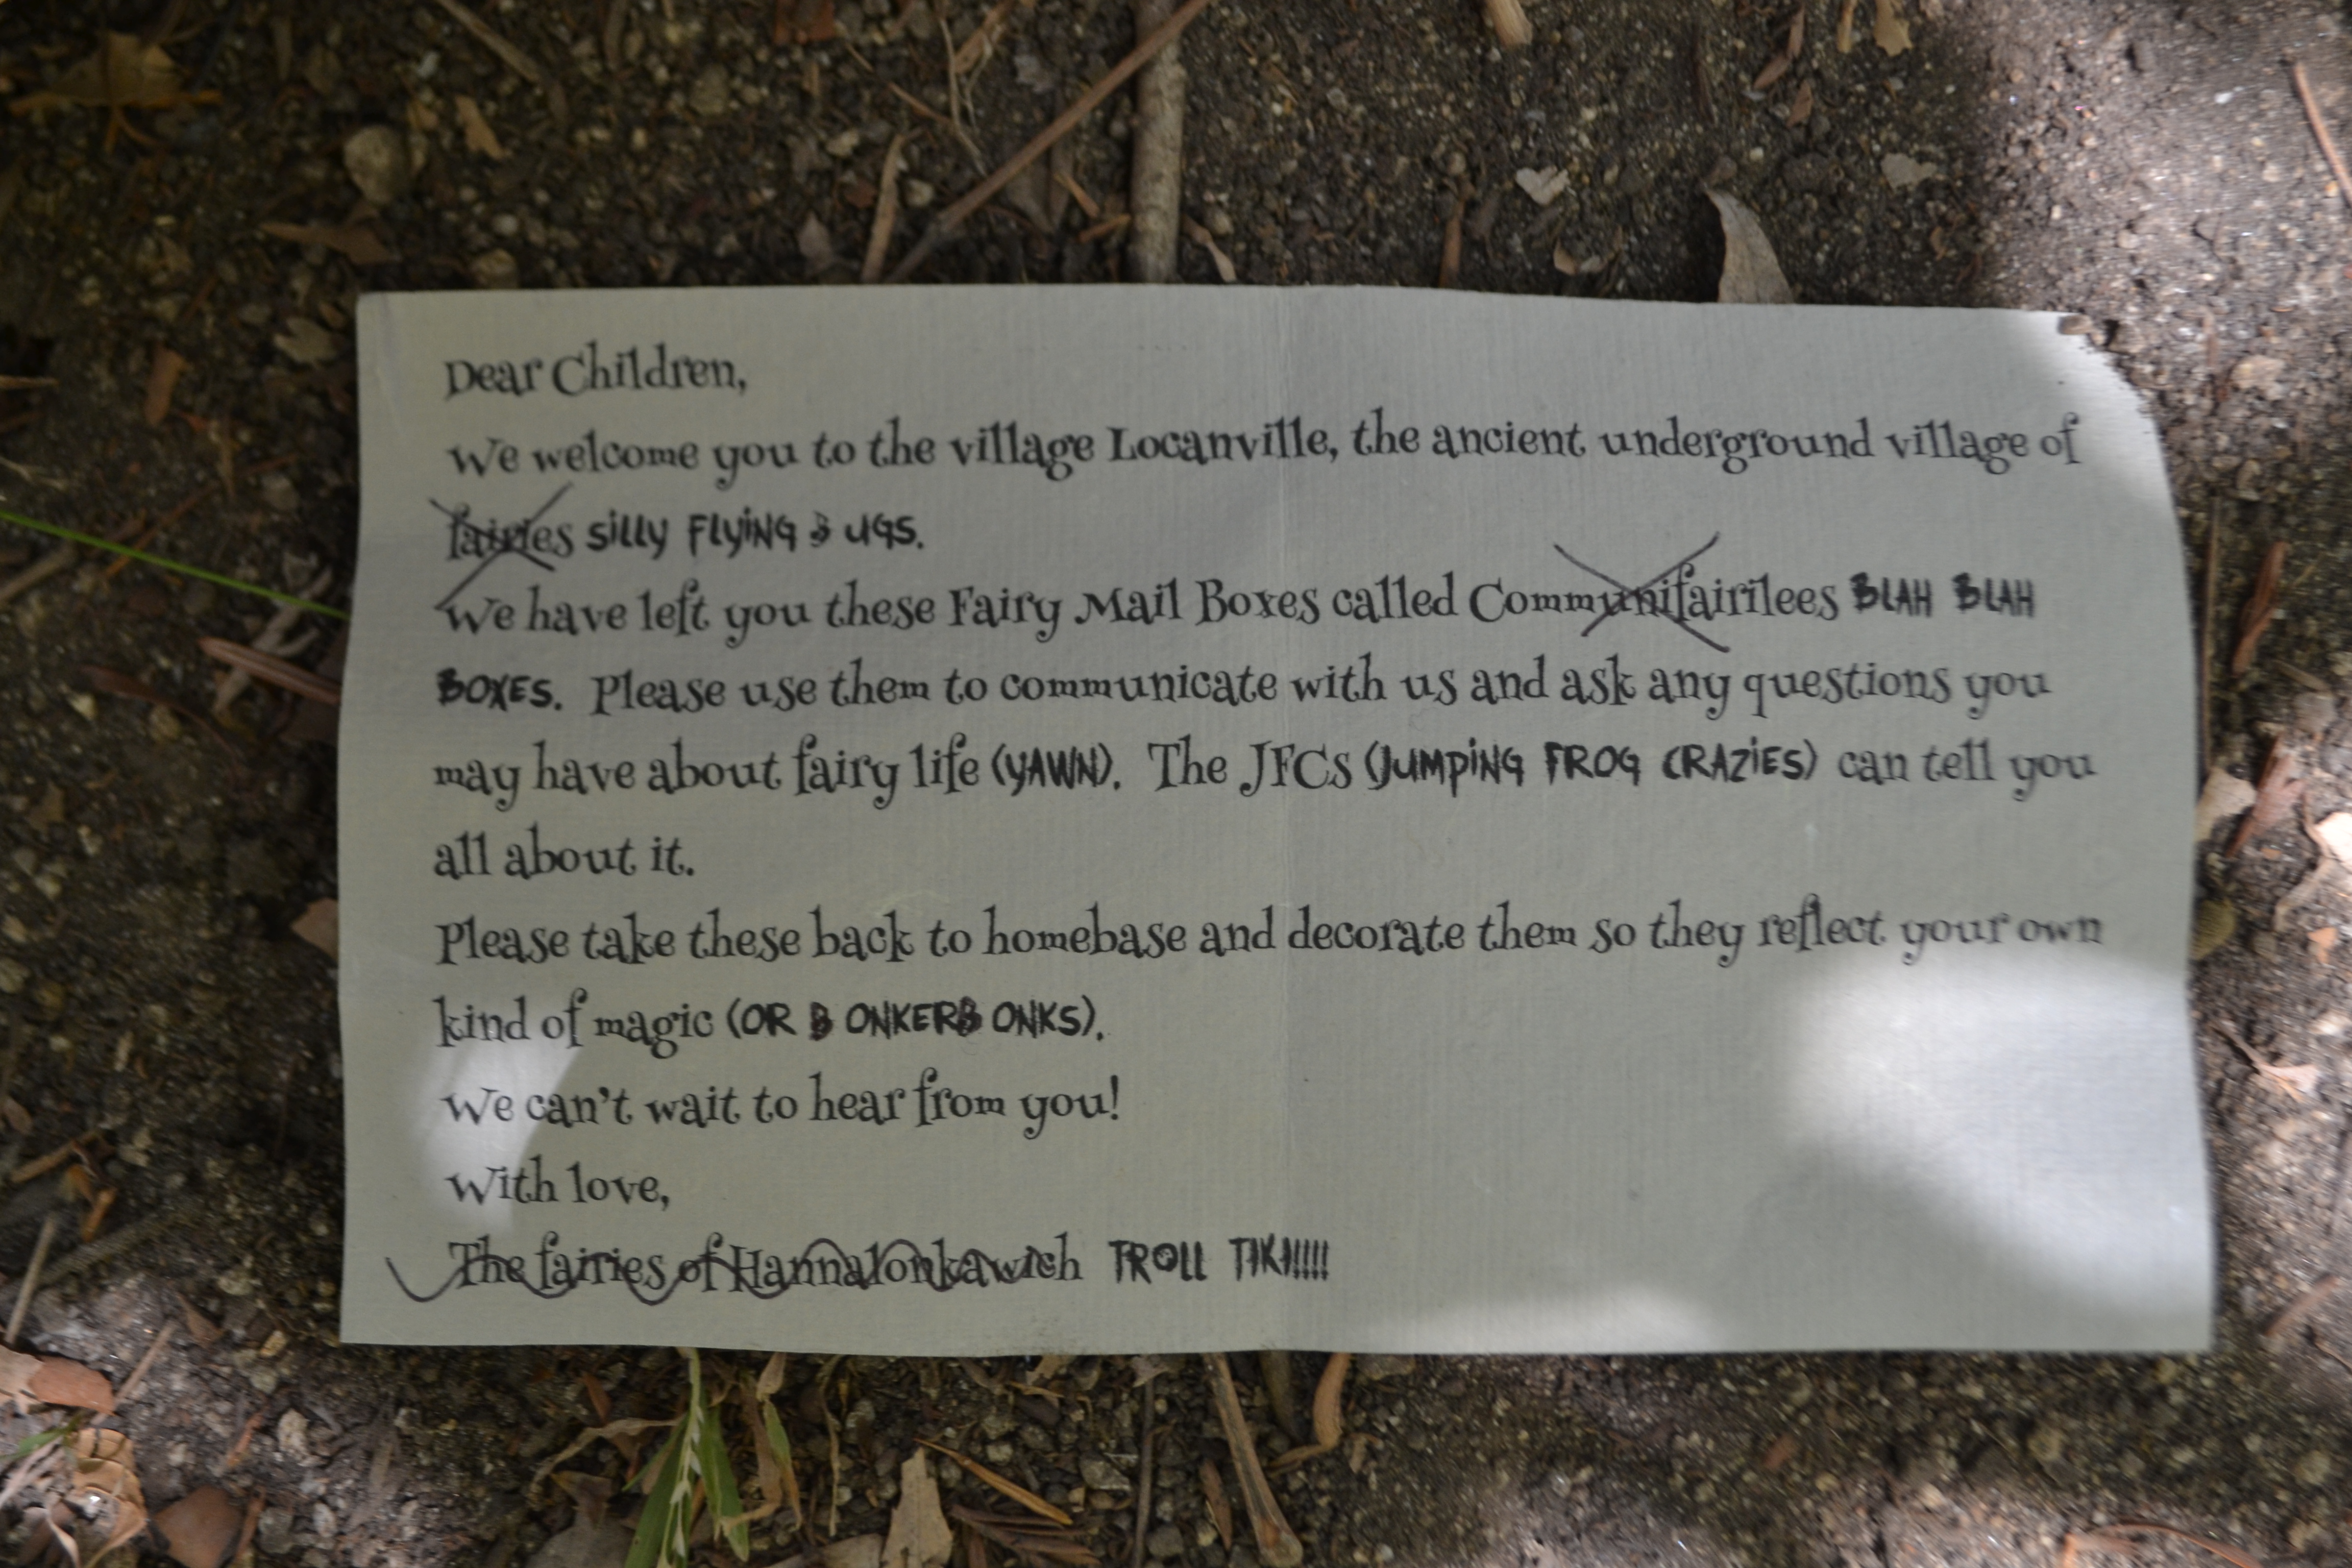 Dear Children,
We welcome you to the village Locanville, the ancient underground village of
fairies SILLY FLYING BUGS.
We have left you these Fairy Mail Boxes called Communifairilees BLAH BLAH
BOXES. Please use them to communicate with us and ask any questions you
may have about fairy life (YAWN). The JFCs (JUMPING FROG CRAZIES) can tell you
all about it.
Please take these back to homebase and decorate them so they reflect your own
kind of magic (OR BONKERBONKS).
We can't wait to hear from you!
With love,
The fairies of Hannalonkawich TROLL TIKI!!!!